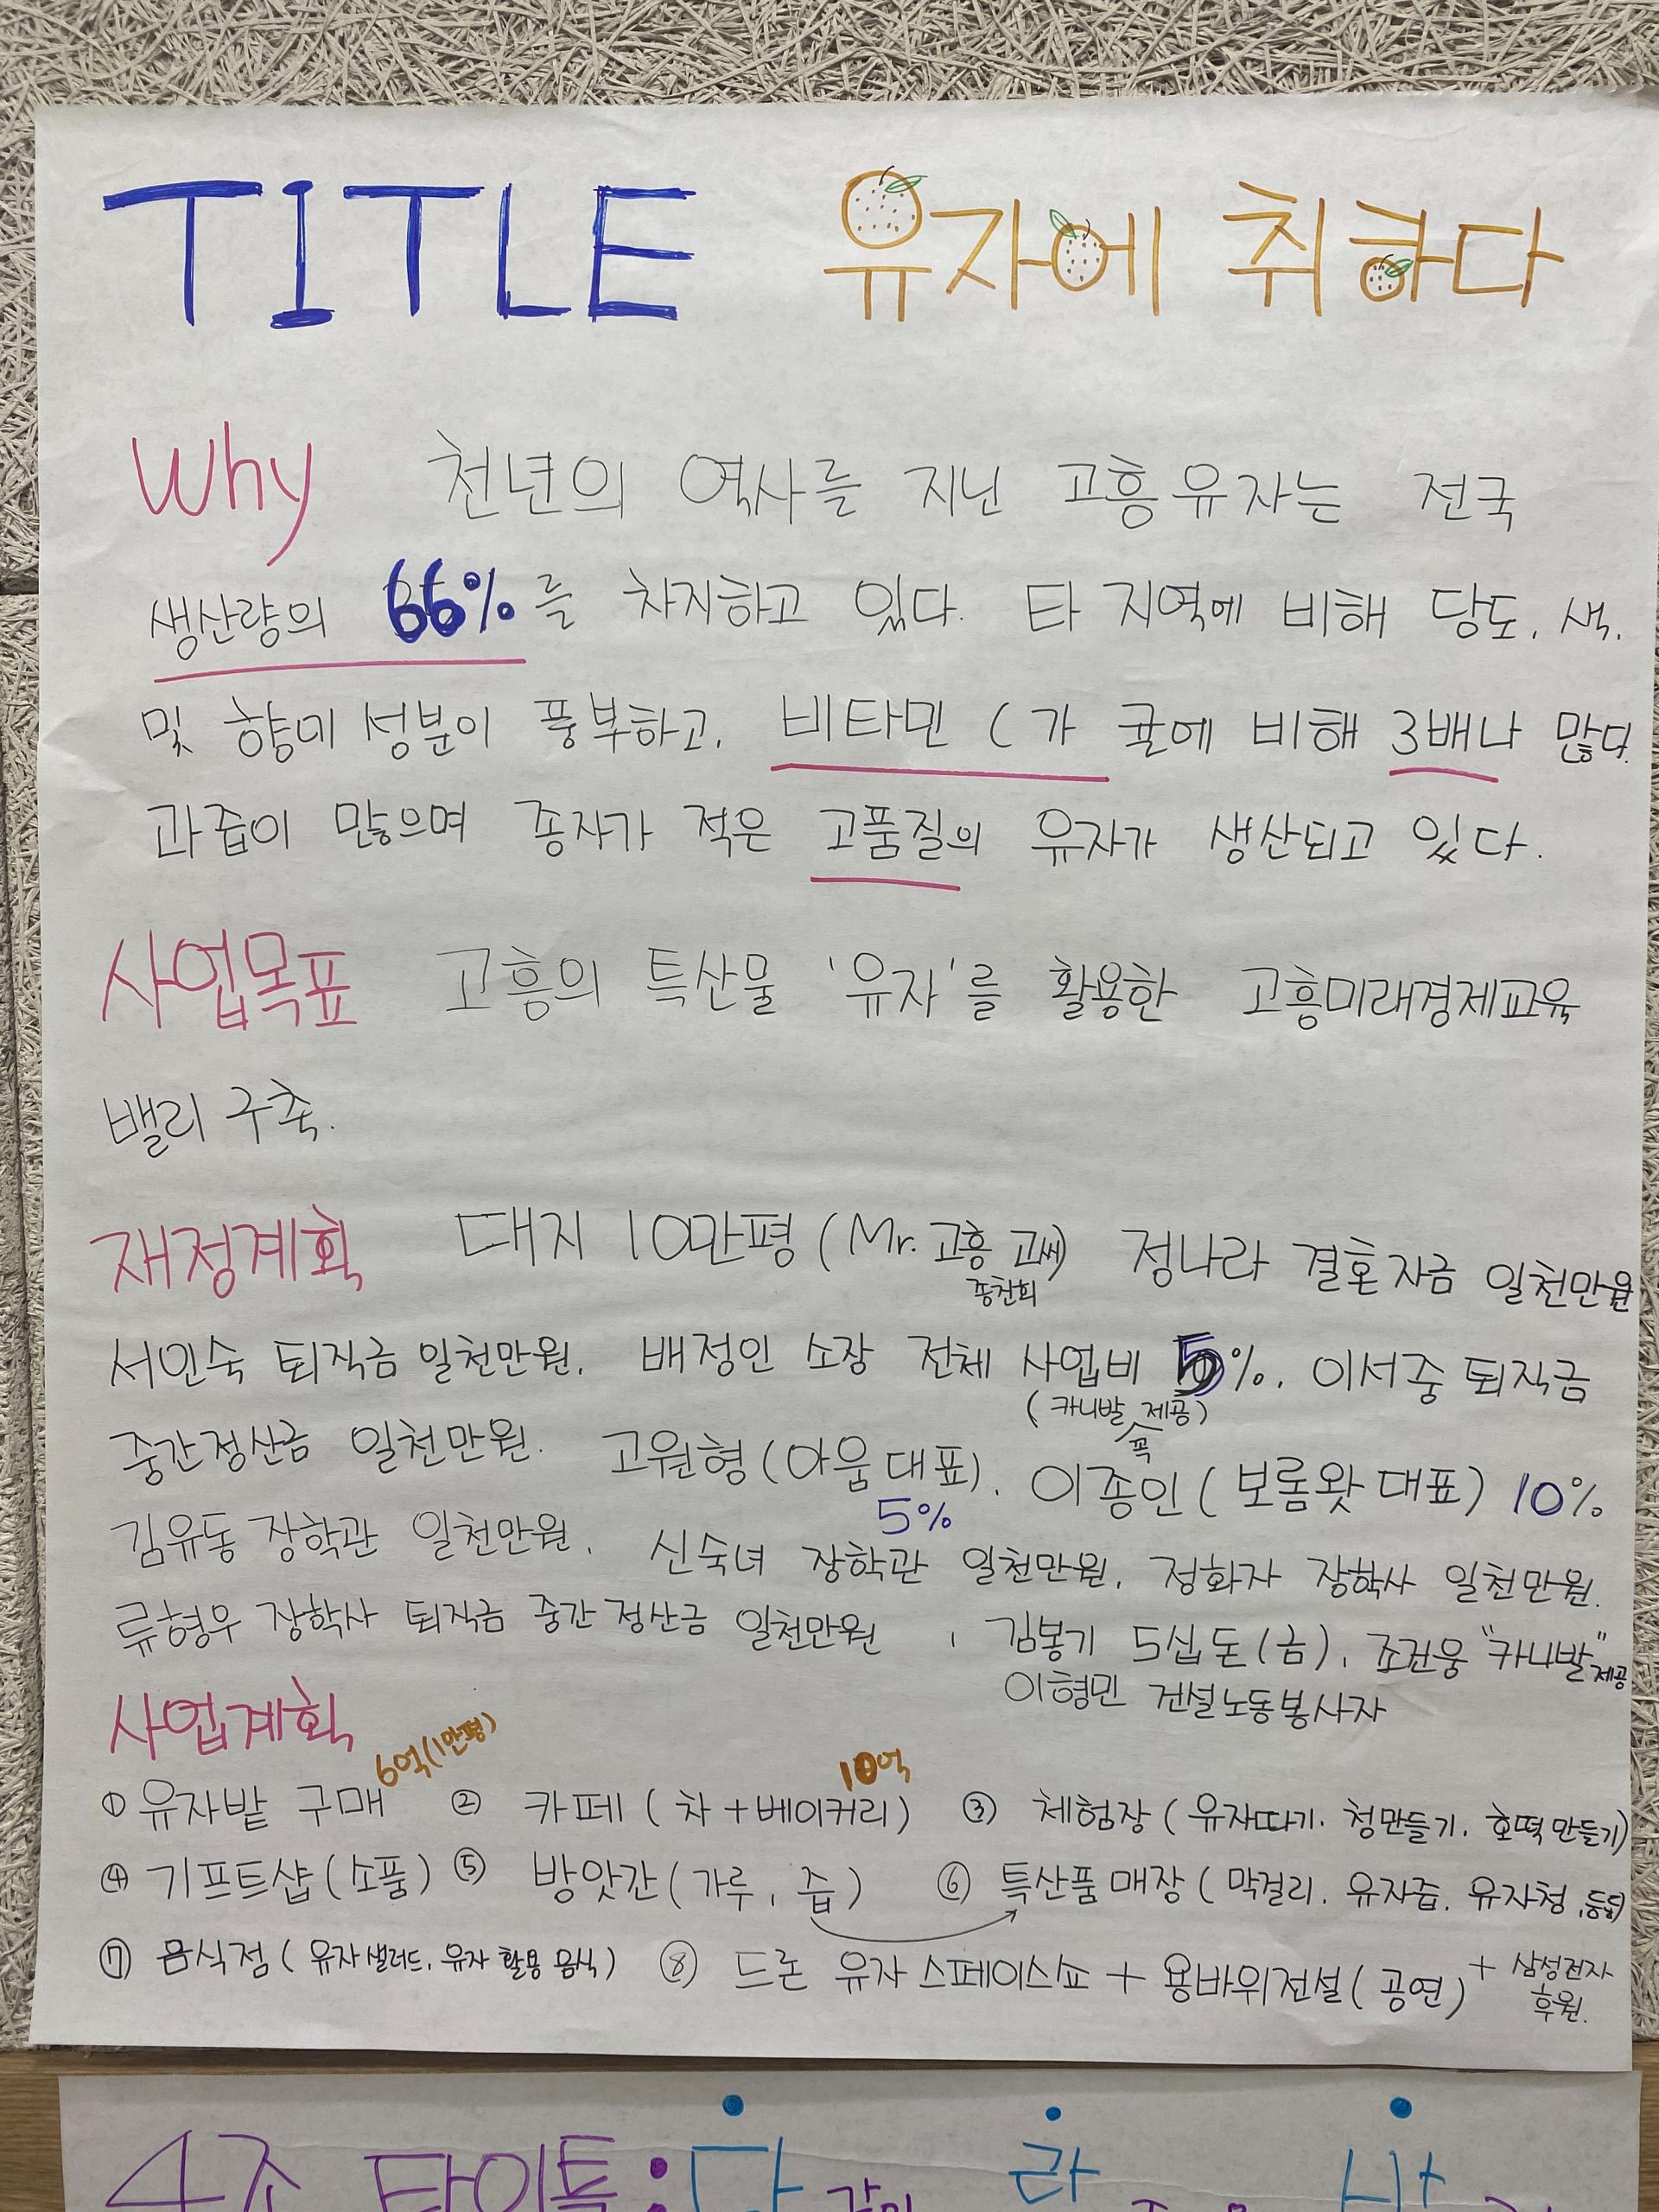 TITLE 유자에 취하다
Why 천년의 역사를 지닌 고흥유자는 전국
생산량의 66%를 차지하고 있다. 타 지역에 비해 당도, 색,
및 향미 성분이 풍부하고, 비타민 C가 귤에 비해 3배나 많다.
과즙이 많으며 종자가 적은 고품질의 유자가 생산되고 있다.
사업목표 고흥의 특산물 '유자'를 활용한 고흥미래경제교육
밸리 구축.
재정계획 대지 10만평 (Mr. 고흥 고씨) 정나라 결혼자금 일천만원
종친회
서인숙 퇴직금 일천만원. 배정인 소장 전체 사업비 5%. 이서중 퇴직금
(카니발 제공)
꼭
중간정산금 일천만원. 고원형(아움대표). 이종인(보롬왓 대표) 10%
5%
김유동 장학관 일천만원. 신숙녀 장학관 일천만원. 정화자 장학사 일천만원.
류형우 장학사 퇴직금 중간 정산금 일천만원, 김봉기 5십돈(금). 조건웅 "카니발" 제공
이형민 건설노동봉사자
사업계획
6억(1만평) 10억
① 유자밭 구매 ② 카페(차+베이커리) ③ 체험장(유자따기. 청만들기. 호떡만들기)
④ 기프트샵(소품) ⑤ 방앗간(가루, 즙) ⑥ 특산품 매장(막걸리. 유자즙. 유자청, 등등)
⑦ 음식점(유자샐러드, 유자 활용 음식) ⑧ 드론 유자 스페이스쇼 + 용바위전설(공연) + 삼성전자
후원.
4조 타이틀: